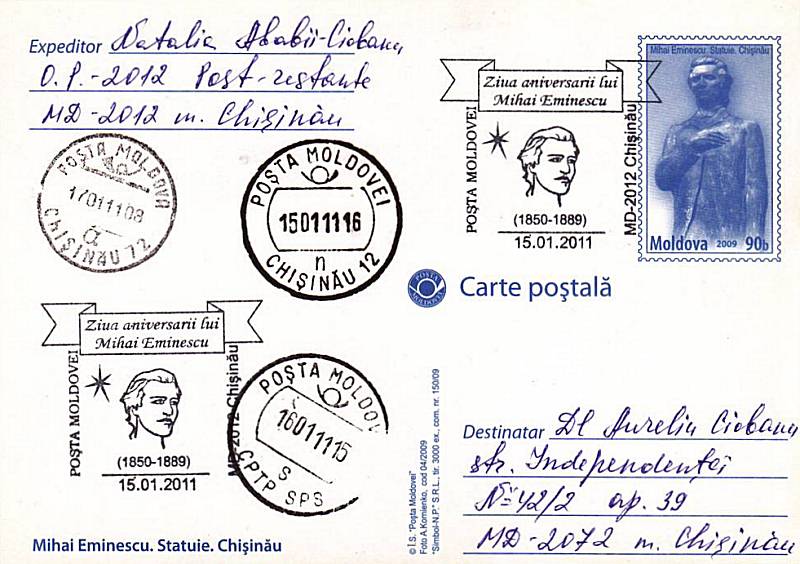 Expeditor Natalia Ababii-Ciobanu
O.P.-2012 Post-restante
MD-2012 m. Chişinău
POŞTA MOLDOVA
17011108
a
CHIŞINĂU 72
POŞTA MOLDOVEI
15011116
n
CHIŞINĂU 12
Ziua aniversarii lui
Mihai Eminescu
POŞTA MOLDOVEI
MD-2012 Chişinău
(1850-1889)
15.01.2011
Mihai Eminescu. Statuie. Chişinău
Moldova 2009 90b
POŞTA MOLDOVEI
Carte poştală
Ziua aniversarii lui
Mihai Eminescu
POŞTA MOLDOVEI
MD-2012 Chişinău
(1850-1889)
15.01.2011
POŞTA MOLDOV
16011115
S
CPTP SPS
© Î.S. "Poşta Moldovei"
Foto A.Kornienko, cod 04/2009
"Simbol-N.P." S.R.L., tir. 3000 ex., com. nr. 150/09
Destinatar Dl Aureliu Ciobanu
str. Independenţei
N° 42/2 ap. 39
MD-2072 m. Chişinău
Mihai Eminescu. Statuie. Chişinău